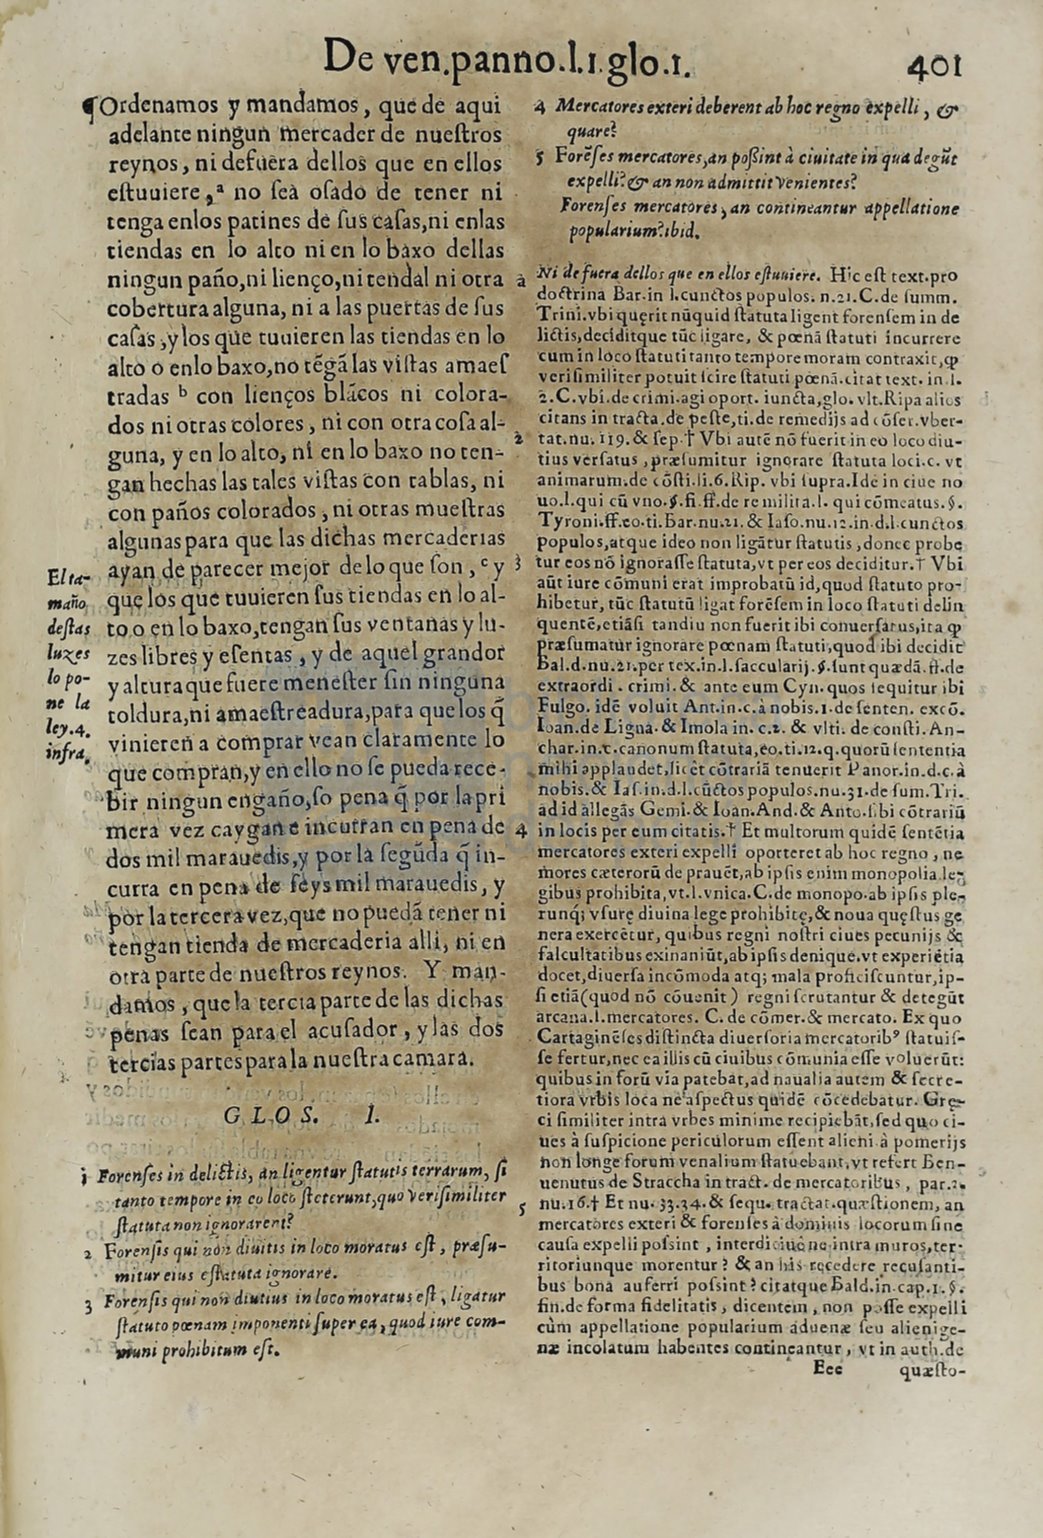 De ven.panno.l.1.glo.1. 401
¶Ordenamos y mandamos, que de aqui
adelante ningun mercader de nueſtros
reynos, ni defuera dellos que en ellos
eſtuuiere,ª no ſea oſado de tener ni
tenga enlos patines de ſus caſas,ni enlas
tiendas en lo alto ni en lo baxo dellas
ningun paño,ni lienço,ni tendal ni otra
cobertura alguna, ni a las puertas de ſus
caſas,y los que tuuieren las tiendas en lo
alto o enlo baxo,no tēgā las viſtas amaeſ
tradas ᵇ con lienços blācos ni colora-
dos ni otras colores, ni con otra coſa al-
guna, y en lo alto, ni en lo baxo no ten-
gan hechas las tales viſtas con tablas, ni
con paños colorados, ni otras mueſtras
algunas para que las dichas mercaderias
ayan de parecer mejor de lo que ſon, ᶜ y
que los que tuuieren ſus tiendas en lo al-
to o en lo baxo,tengan ſus ventanas y lu-
zes libres y eſentas, y de aquel grandor
y altura que fuere meneſter ſin ninguna
toldura,ni amaeſtreadura,para que los q̄
vinieren a comprar vean claramente lo
que compran,y en ello no ſe pueda rece-
bir ningun engaño,ſo pena q̄ por la pri
mera vez caygan e incurran en pena de
dos mil marauedis,y por la ſegūda q̄ in-
curra en pena de ſeys mil marauedis, y
por la tercera vez,que no puedā tener ni
tengan tienda de mercaderia alli, ni en
otra parte de nueſtros reynos. Y man-
damos, que la tercia parte de las dichas
penas ſean para el acuſador, y las dos
tercias partes para la nueſtra camara.
El ta-
maño
deſtas
luzes
lo po-
ne la
ley.4.
infra.
GLOS. 1.
1 Forenſes in delictis, an ligentur ſtatutis terrarum, ſi
tanto tempore in eo loco ſteterunt,quo veriſimiliter
ſtatuta non ignorarent?
2 Forenſis qui non diutis in loco moratus eſt, præſu-
mitur eius eſtatuta ignorare.
3 Forenſis qui non diutius in loco moratus eſt, ligatur
ſtatuto pœnam imponenti ſuper ea, quod iure com-
muni prohibitum eſt.
4 Mercatores exteri deberent ab hoc regno expelli, &
quare?
5 Forēſes mercatores,an poßint à ciuitate in qua degūt
expelli?& an non admittit venientes?
Forenſes mercatores, an contineantur appellatione
popularium?.ibid.
a Ni de fuera dellos que en ellos eſtuuiere. Hic eſt text.pro
doctrina Bar.in l.cunctos populos. n.21.C.de ſumm.
Trini.vbi quęrit nūquid ſtatuta ligent forenſem in de
lictis,deciditque tūc ligare, & pœnā ſtatuti incurrere
cum in loco ſtatuti tanto tempore moram contraxit,ꝙ
veriſimiliter potuit ſcire ſtatuti pœnā.citat text. in l.
2.C.vbi.de crimi.agi oport. iuncta,glo.vlt.Ripa alios
citans in tracta.de peſte,ti.de remedijs ad cōſer.vber-
2 tat.nu. 119.& ſep.† Vbi autē nō fuerit in eo loco diu-
tius verſatus, præſumitur ignorare ſtatuta loci.c. vt
animarum.de cōſti.li.6.Rip. vbi ſupra.Idē in ciue no
uo.l.qui cū vno.§.fi.ff.de re milita.l. qui cōmeatus.§.
Tyroni.ff.eo.ti.Bar.nu.21.& Iaſo.nu.12.in.d.l.cunctos
populos,atque ideo non ligātur ſtatutis,donec probe
3 tur eos nō ignoraſſe ſtatuta,vt per eos deciditur.† Vbi
aūt iure cōmuni erat improbatū id,quod ſtatuto pro-
hibetur, tūc ſtatutū ligat forēſem in loco ſtatuti delin
quentē,etiāſi tandiu non fuerit ibi conuerſatus,ita ꝙ
præſumatur ignorare pœnam ſtatuti,quod ibi decidit
Bal.d.nu.21.per tex.in.l.ſaccularij.§.ſunt quædā.ff.de
extraordi. crimi.& ante eum Cyn.quos ſequitur ibi
Fulgo. idē voluit Ant.in.c.à nobis.1.de ſenten. excō.
Ioan.de Ligna.& Imola in. c.2. & vlti. de conſti. An-
char.in.c.canonum ſtatuta,eo.ti.12.q.quorū ſententia
mihi applaudet,licèt cōtrariā tenuerit Panor.in.d.c.à
nobis.& Iaſ.in.d.l.cūctos populos.nu.31.de ſum.Tri.
ad id allegās Gemi.& Ioan.And.& Anto.ſibi cōtrariū
4 in locis per eum citatis.† Et multorum quidē ſentētia
mercatores exteri expelli oporteret ab hoc regno, ne
mores cæterorū de prauēt,ab ipſis enim monopolia le-
gibus prohibita,vt.l.vnica.C.de monopo.ab ipſis ple-
runq; vſurę diuina lege prohibitę,& noua quęſtus ge
nera exercētur, quibus regni noſtri ciues pecunijs &
falcultatibus exinaniūt,ab ipſis denique.vt experiētia
docet,diuerſa incōmoda atq; mala proficiſcuntur,ip-
ſi etiā(quod nō cōuenit) regni ſcrutantur & detegūt
arcana.l.mercatores. C. de cōmer.& mercato. Ex quo
Cartaginēſes diſtincta diuerſoria mercatoribꝰ ſtatuiſ-
ſe fertur,nec ea illis cū ciuibus cōmunia eſſe voluerūt:
quibus in forū via patebat,ad naualia autem & ſecre-
tiora vrbis loca ne aſpectus quidē cōcedebatur. Gręe-
ci ſimiliter intra vrbes minime recipiebāt,ſed quo ci-
ues à ſuſpicione periculorum eſſent alieni à pomerijs
non longe forum venalium ſtatuebant,vt refert Ben-
uenutus de Straccha in tract. de mercatoribus, par.2.
5 nu.16.† Et nu. 33.34.& ſequ. tractat.quæſtionem, an
mercatores exteri & forenſes à dominis locorum ſine
cauſa expelli poſsint, interdiciuè ne intra muros,ter-
ritoriunque morentur? & an his recedere recuſanti-
bus bona auferri poſsint? citatque Bald.in.cap.1.§.
fin.de forma fidelitatis, dicentem, non poſſe expelli
cùm appellatione popularium aduenæ ſeu alienige-
næ incolatum habentes contineantur, vt in auth.de
Eee quæſto-